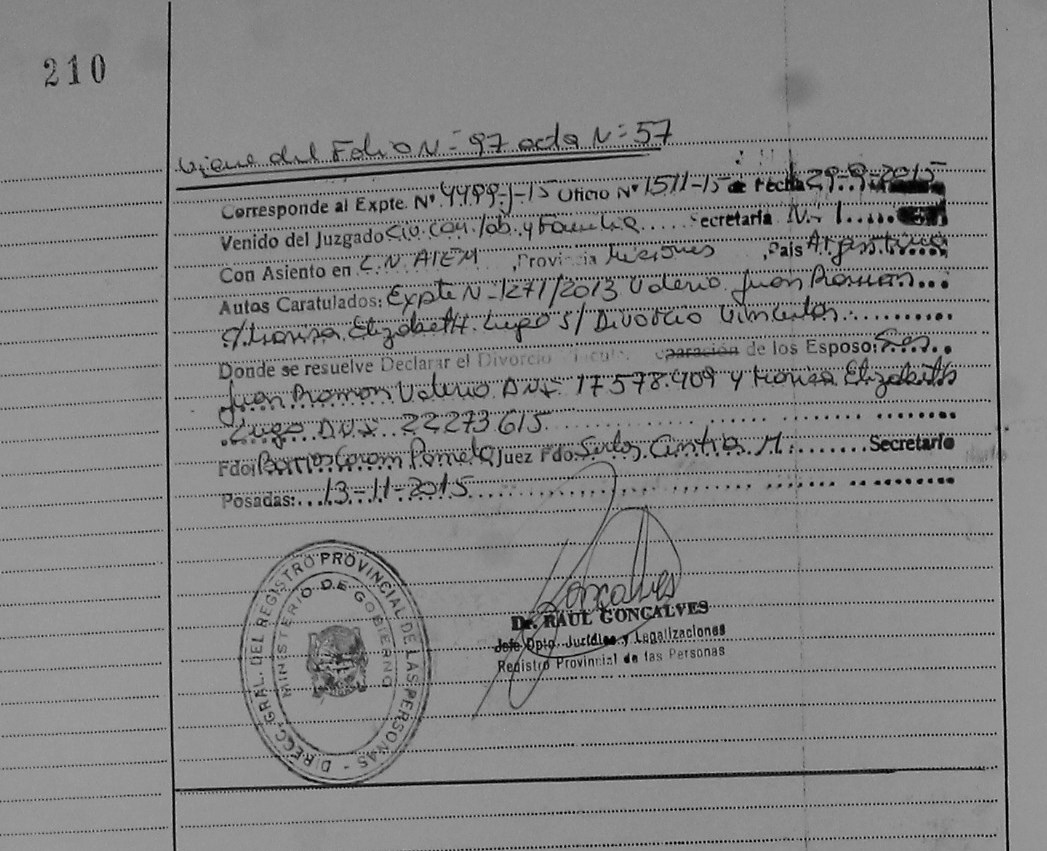 210
Viene del Folio N= 97 acta N= 57
Corresponde al Expte. Nº 4499-J-15 Oficio Nº 1511-15 de Fecha 29-9-2015
Venido del Juzgado Civ. Com. lab. y Familia Secretaria N- 1
Con Asiento en L.N. ALEM, Provincia Misiones, Pais Argentina
Autos Caratulados: Expte N- 1271/2013 Valerio Juan Ramon
Elizabeth Lugo S/ Divorcio Vincular
Donde se resuelve Declarar el Divorcio Vincula paración de los Esposo: Sres.
Juan Ramon Valerio D.N.I. 17.578.409 y Elizabeth
Lugo D.N.I. 22273615
Fdo: Juez Fdo: Cintia M. Secretario
Posadas: 13-11-2015
DIRECC. GRAL. DEL REGISTRO PROVINCIAL DE LAS PERSONAS -
MINISTERIO DE GOBIERNO
Goncalves
Dr. RAUL GONCALVES
Jefe Dpto. Jurídico y Legalizaciones
Registro Provincial de las Personas